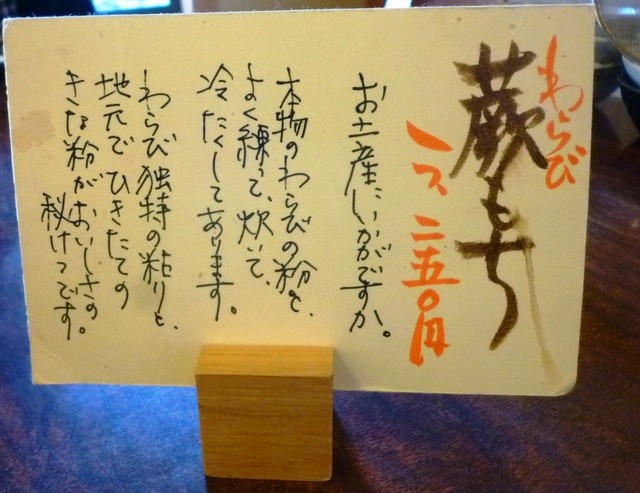 わらび
蕨もち
一つ 二五〇円
お土産にいかがですか。
本物のわらびの粉を、
よく練って、炊いて、
冷たくしてあります。
わらび独特の粘りと、
地元でひきたての
きな粉がおいしさの
秘けつです。